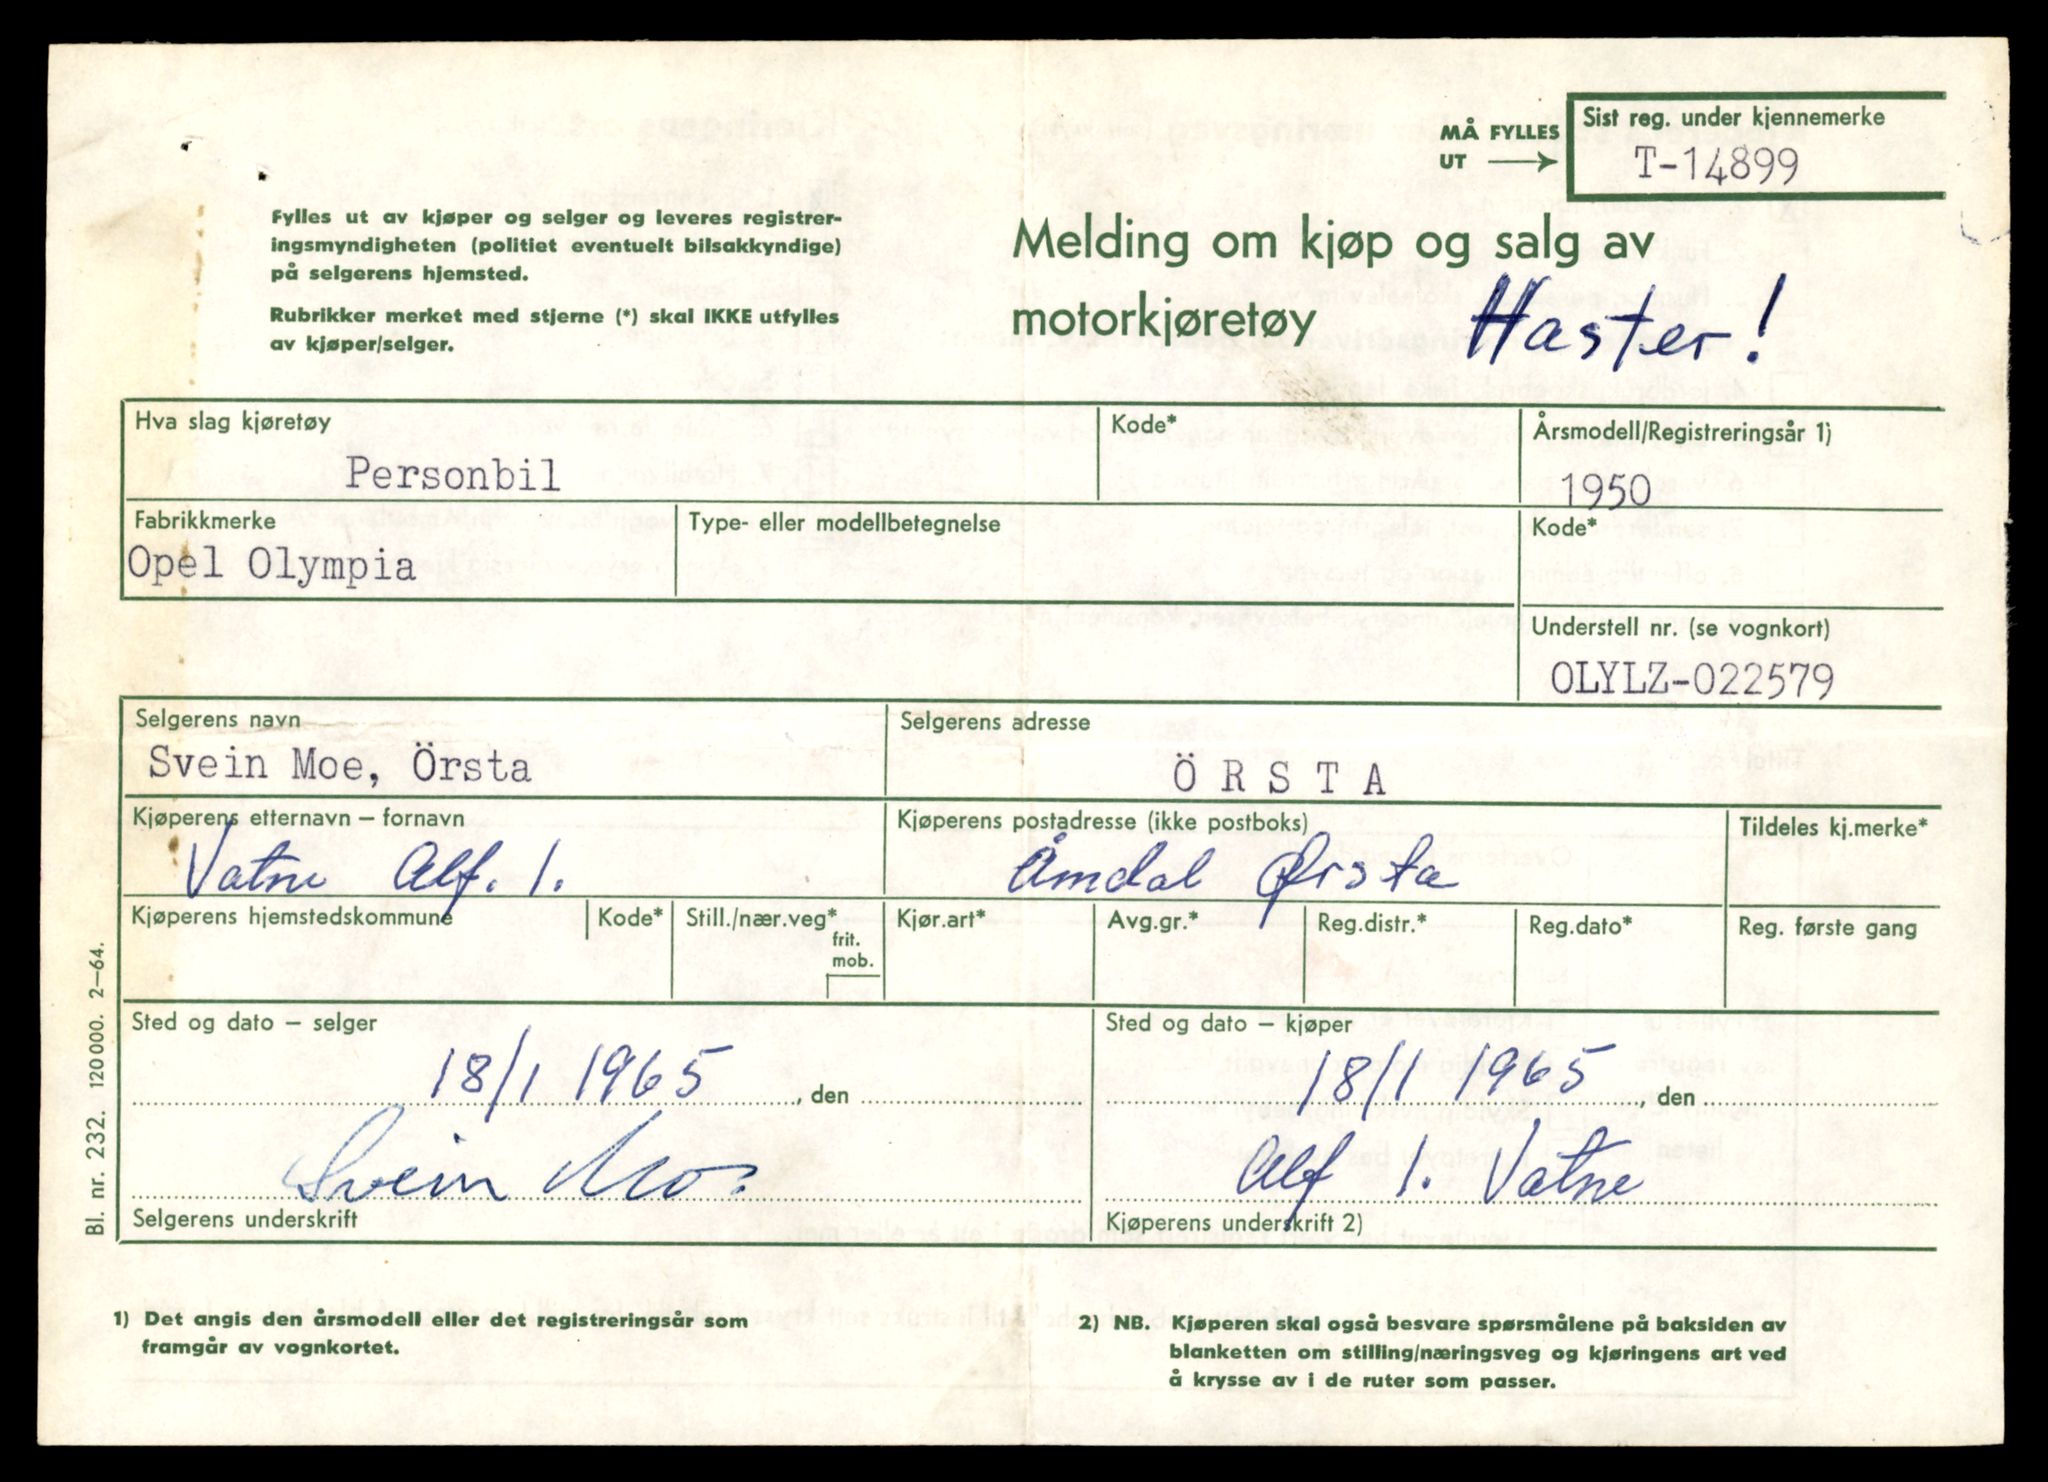 MÅ FYLLES
UT
Sist reg. under kjennemerke
T-14899
Fylles ut av kjøper og selger og leveres registrer-
ingsmyndigheten (politiet eventuelt bilsakkyndige)
på selgerens hjemsted.
Rubrikker merket med stjerne (*) skal IKKE utfylles
av kjøper/selger.
Melding om kjøp og salg av
motorkjøretøy
Haster!
Hva slag kjøretøy
Personbil
Kode*
Årsmodell/Registreringsår 1)
1950
Fabrikkmerke
Opel Olympia
Type- eller modellbetegnelse
Kode*
Understell nr. (se vognkort)
OLYLZ-022579
Selgerens navn
Svein Moe, Örsta
Selgerens adresse
ÖRSTA
Kjøperens etternavn – fornavn
Vatne Alf. I.
Kjøperens postadresse (ikke postboks)
Åmdal Ørsta
Tildeles kj.merke*
Kjøperens hjemstedskommune
Kode*
Still./nær.veg*
frit.
mob.
Kjør.art*
Avg.gr.*
Reg.distr.*
Reg.dato*
Reg. første gang
Sted og dato – selger
18/1 1965, den
Svein Moe
Selgerens underskrift
Sted og dato – kjøper
18/1 1965, den
Alf I. Vatne
Kjøperens underskrift 2)
Bl. nr. 232. 120 000. 2–64.
1) Det angis den årsmodell eller det registreringsår som
framgår av vognkortet.
2) NB. Kjøperen skal også besvare spørsmålene på baksiden av
blanketten om stilling/næringsveg og kjøringens art ved
å krysse av i de ruter som passer.